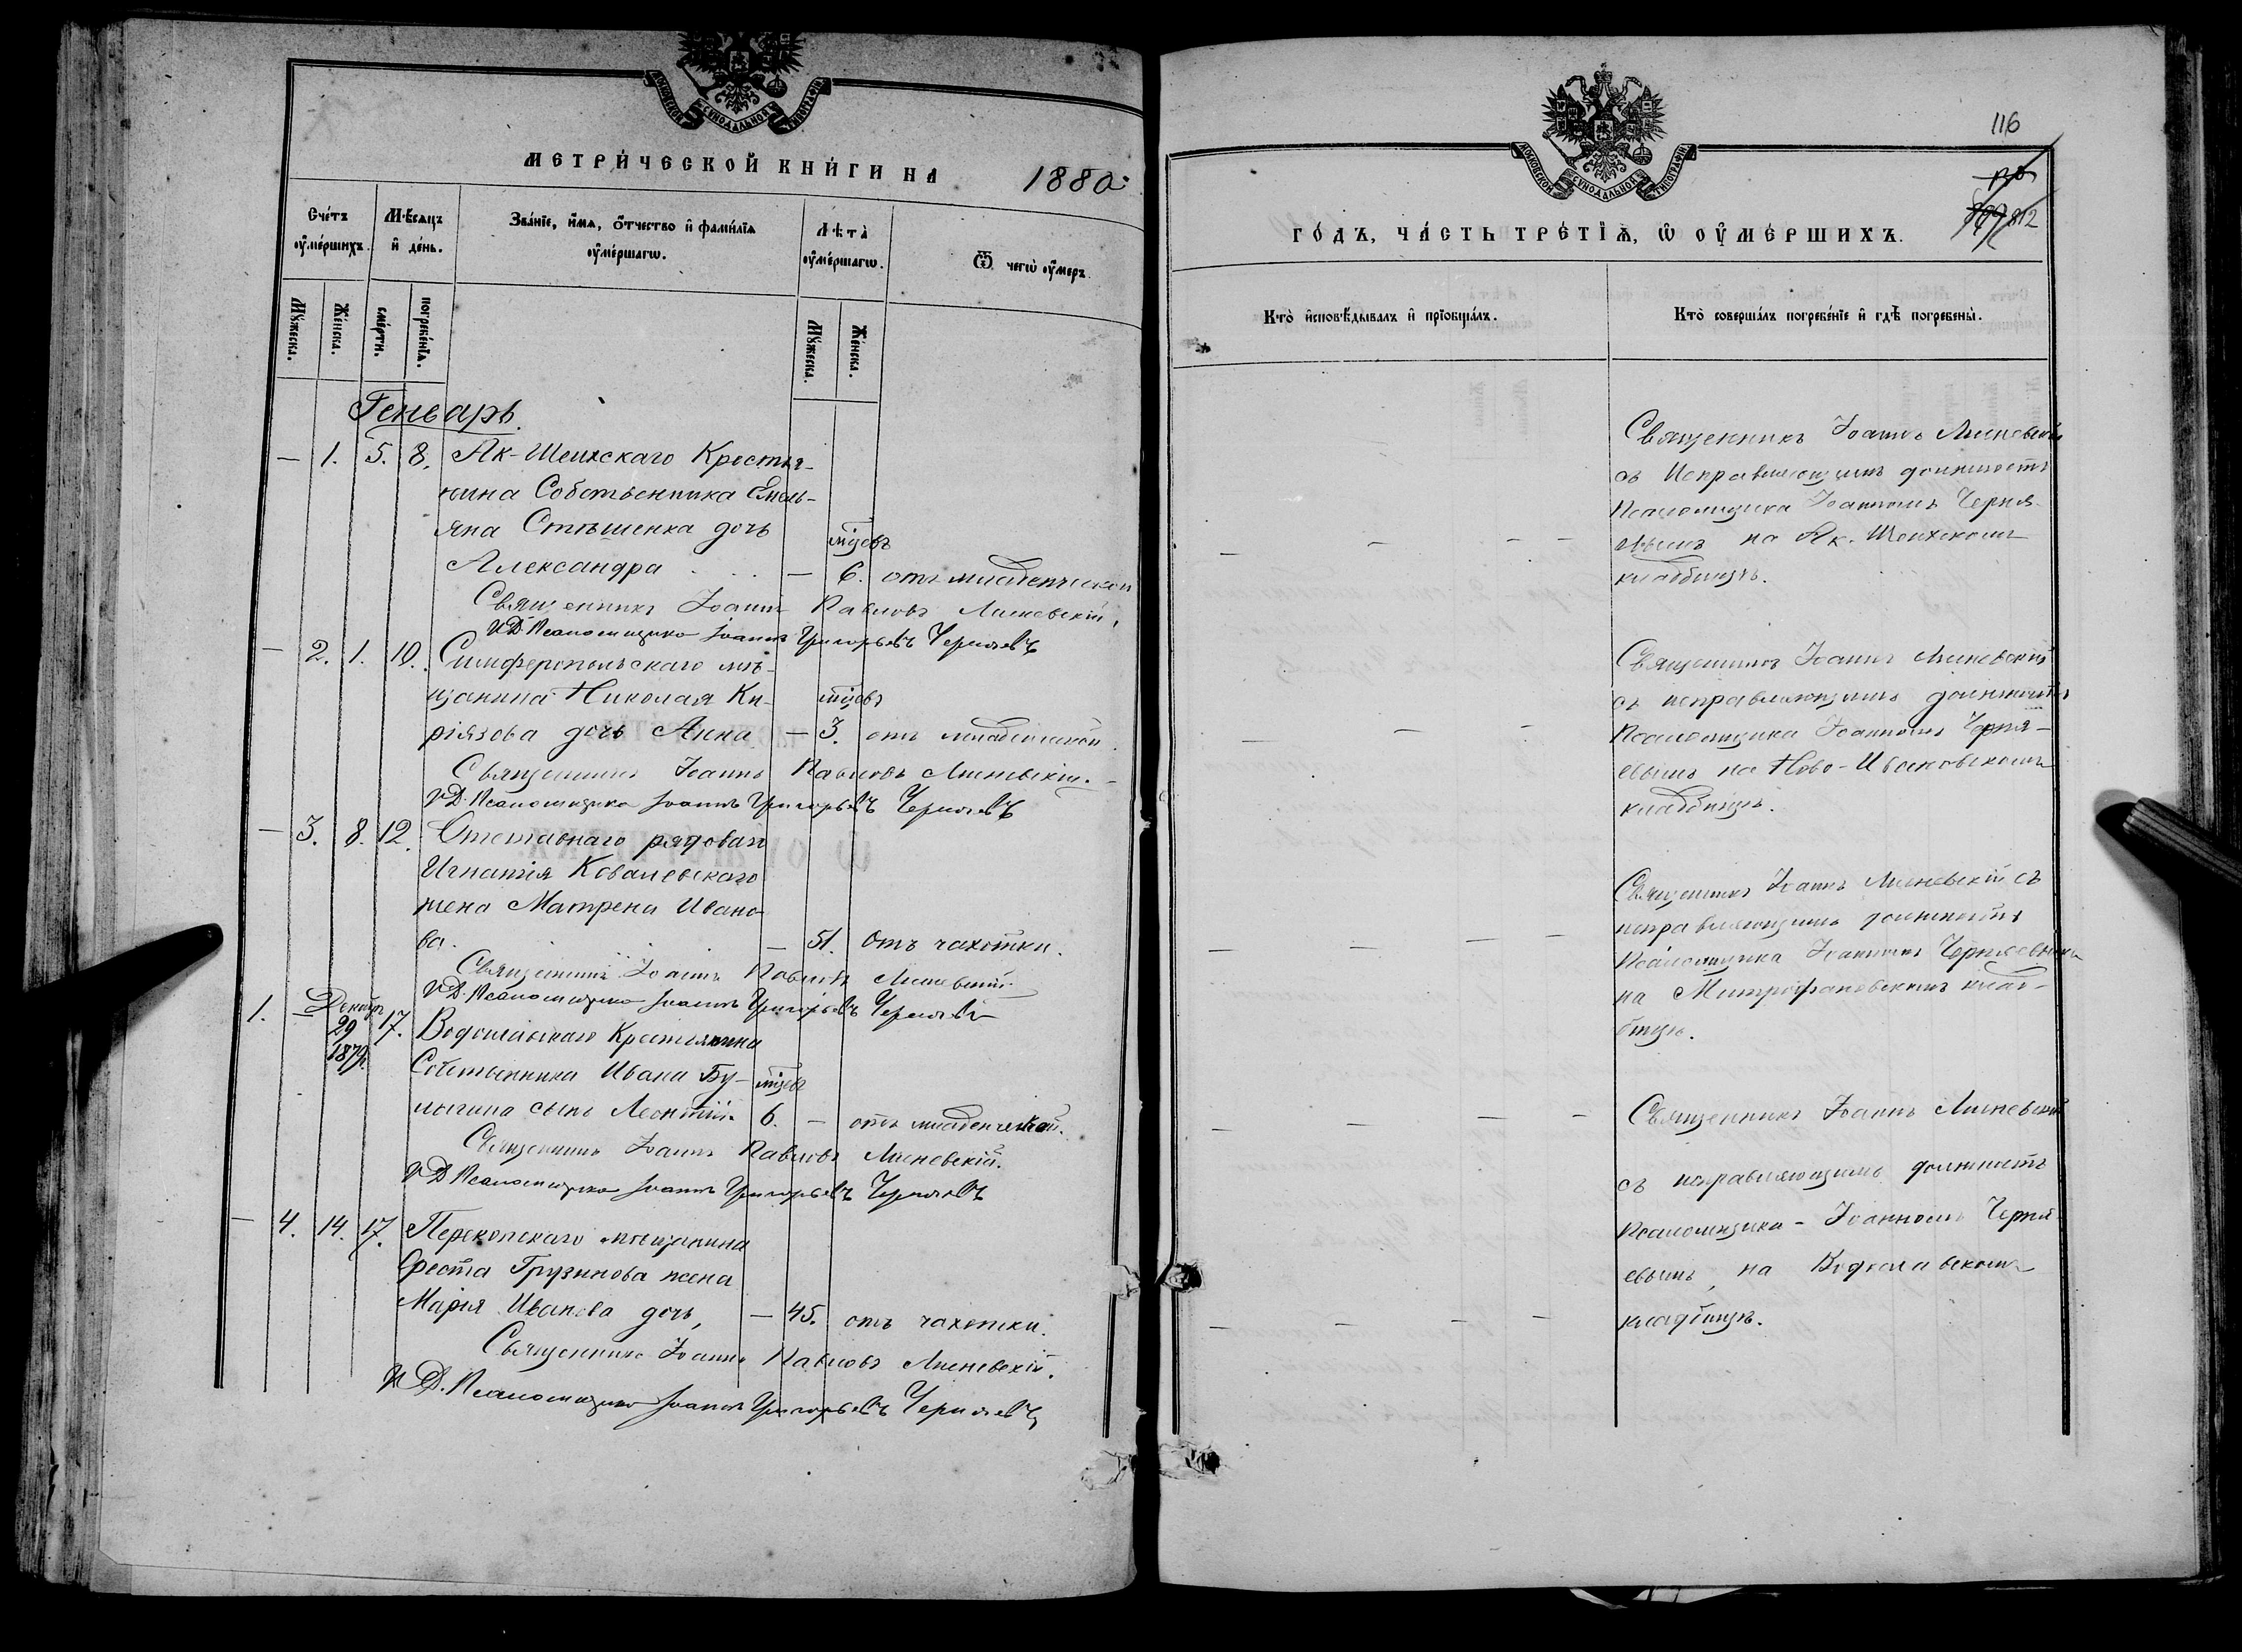 МОСКОВСКОЙ СѴНОДАЛЬНОЙ ТИПОГРАФІИ
МЕТРИ́ЧЕСКОЙ КНИ́ГИ НА 1880
Сче́тъ оу҆ме́ршихъ.
Мѣ́сяцъ и҆ де́нь.
Зва́нїе, и҆́мѧ, ѻ҆́тчество и҆ фами́лїѧ оу҆ме́ршагѡ.
Лѣ́та̀ оу҆ме́ршагѡ.
Ѿ чегѡ̀ оу҆́меръ.
Мꙋ́жеска.
Же́нска.
сме́рти.
погребе́нїѧ.
Мꙋ́жеска.
Же́нска.
Генварь.
— 1. 5. 8. Ак-Шеихскаго Крестья-
нина Собственника Емель-
яна Стѣшенка дочь
мцевъ
Александра — 6. отъ младенческой
Священникъ Іоаннъ Павловъ Линевскій.
И.Д. Псаломщика Іоаннъ Григорьевъ Черняевъ
— 2. 1. 10. Симферопольскаго мѣ-
щанина Николая Ки-
мцевъ
ріязова дочь Анна — 3. отъ младенческой.
Священникъ Іоаннъ Павловъ Линевскій.
И.Д. Псаломщика Іоаннъ Григорьевъ Черняевъ
— 3. 8. 12. Отставнаго рядоваго
Игнатія Ковалевскаго
жена Матрена Ивано-
ва. — 51. Отъ чахотки.
Священникъ Іоаннъ Павловъ Линевскій.
И.Д. Псаломщика Іоаннъ Григорьевъ Черняевъ
1. — Декабр. 29 1879. 17. Водопайскаго Крестьянина
Собственника Ивана Бу-
мцевъ
лыгина сынъ Леонтій. 6. — отъ младенческой.
Священникъ Іоаннъ Павловъ Линевскій.
И.Д. Псаломщика Іоаннъ Григорьевъ Черняевъ
— 4. 14. 17. Перекопскаго мѣщанина
Ореста Грузинова жена
Марія Иванова дочь, — 45. отъ чахотки.
Священникъ Іоаннъ Павловъ Линевскій.
И.Д. Псаломщика Іоаннъ Григорьевъ Черняевъ
116
812
МОСКОВСКОЙ СѴНОДАЛЬНОЙ ТИПОГРАФІИ
ГО́ДЪ, ЧА́СТЬ ТРЕ́ТЇѦ, Ѡ҆ ОУ҆МЕ́РШИХЪ.
Кто̀ и҆сповѣ́дывалъ и҆ прїобща́лъ.
Кто̀ соверша́лъ погребе́нїе и҆ гдѣ̀ погребены̀.
Священникъ Іоаннъ Линевскій
съ Исправляющимъ должность
Псаломщика Іоанномъ Черня-
евымъ на Ак-Шеихскомъ
кладбищѣ.
Священникъ Іоаннъ Линевскій
съ исправляющимъ должность
Псаломщика Іоанномъ Черня-
евымъ на Ново-Ивановскомъ
кладбищѣ.
Священникъ Іоаннъ Линевскій съ
исправляющимъ должность
Псаломщика Іоанномъ Черняевымъ
на Митрофановскомъ клад-
бищѣ.
Священникъ Іоаннъ Линевскій
съ исправляющимъ должность
Псаломщика - Іоанномъ Черня-
евымъ, на
кладбищѣ.